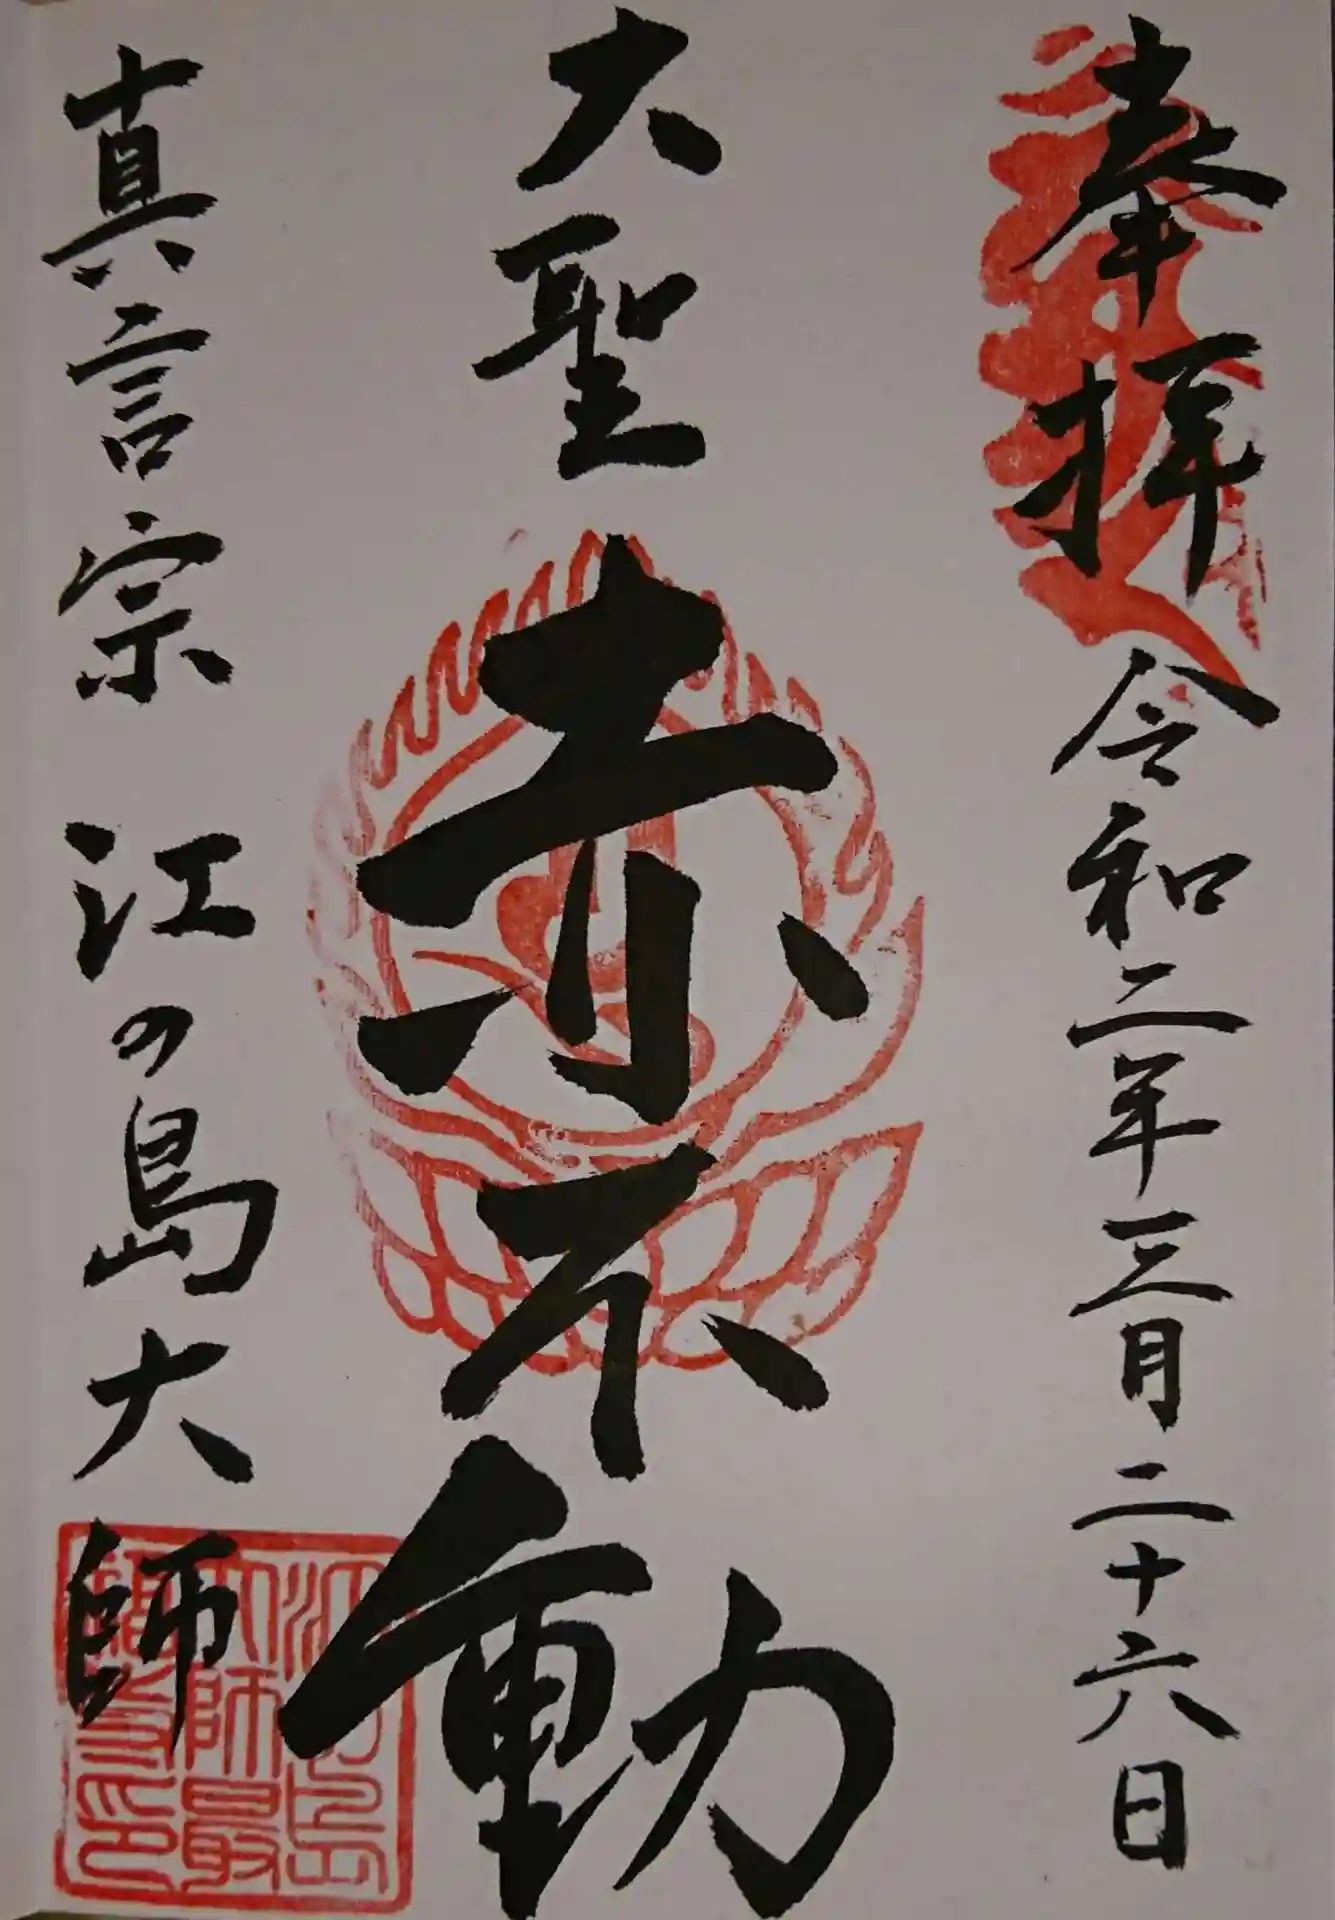 奉拝 令和二年三月二十六日
大聖 赤不動
真言宗 江の島大師